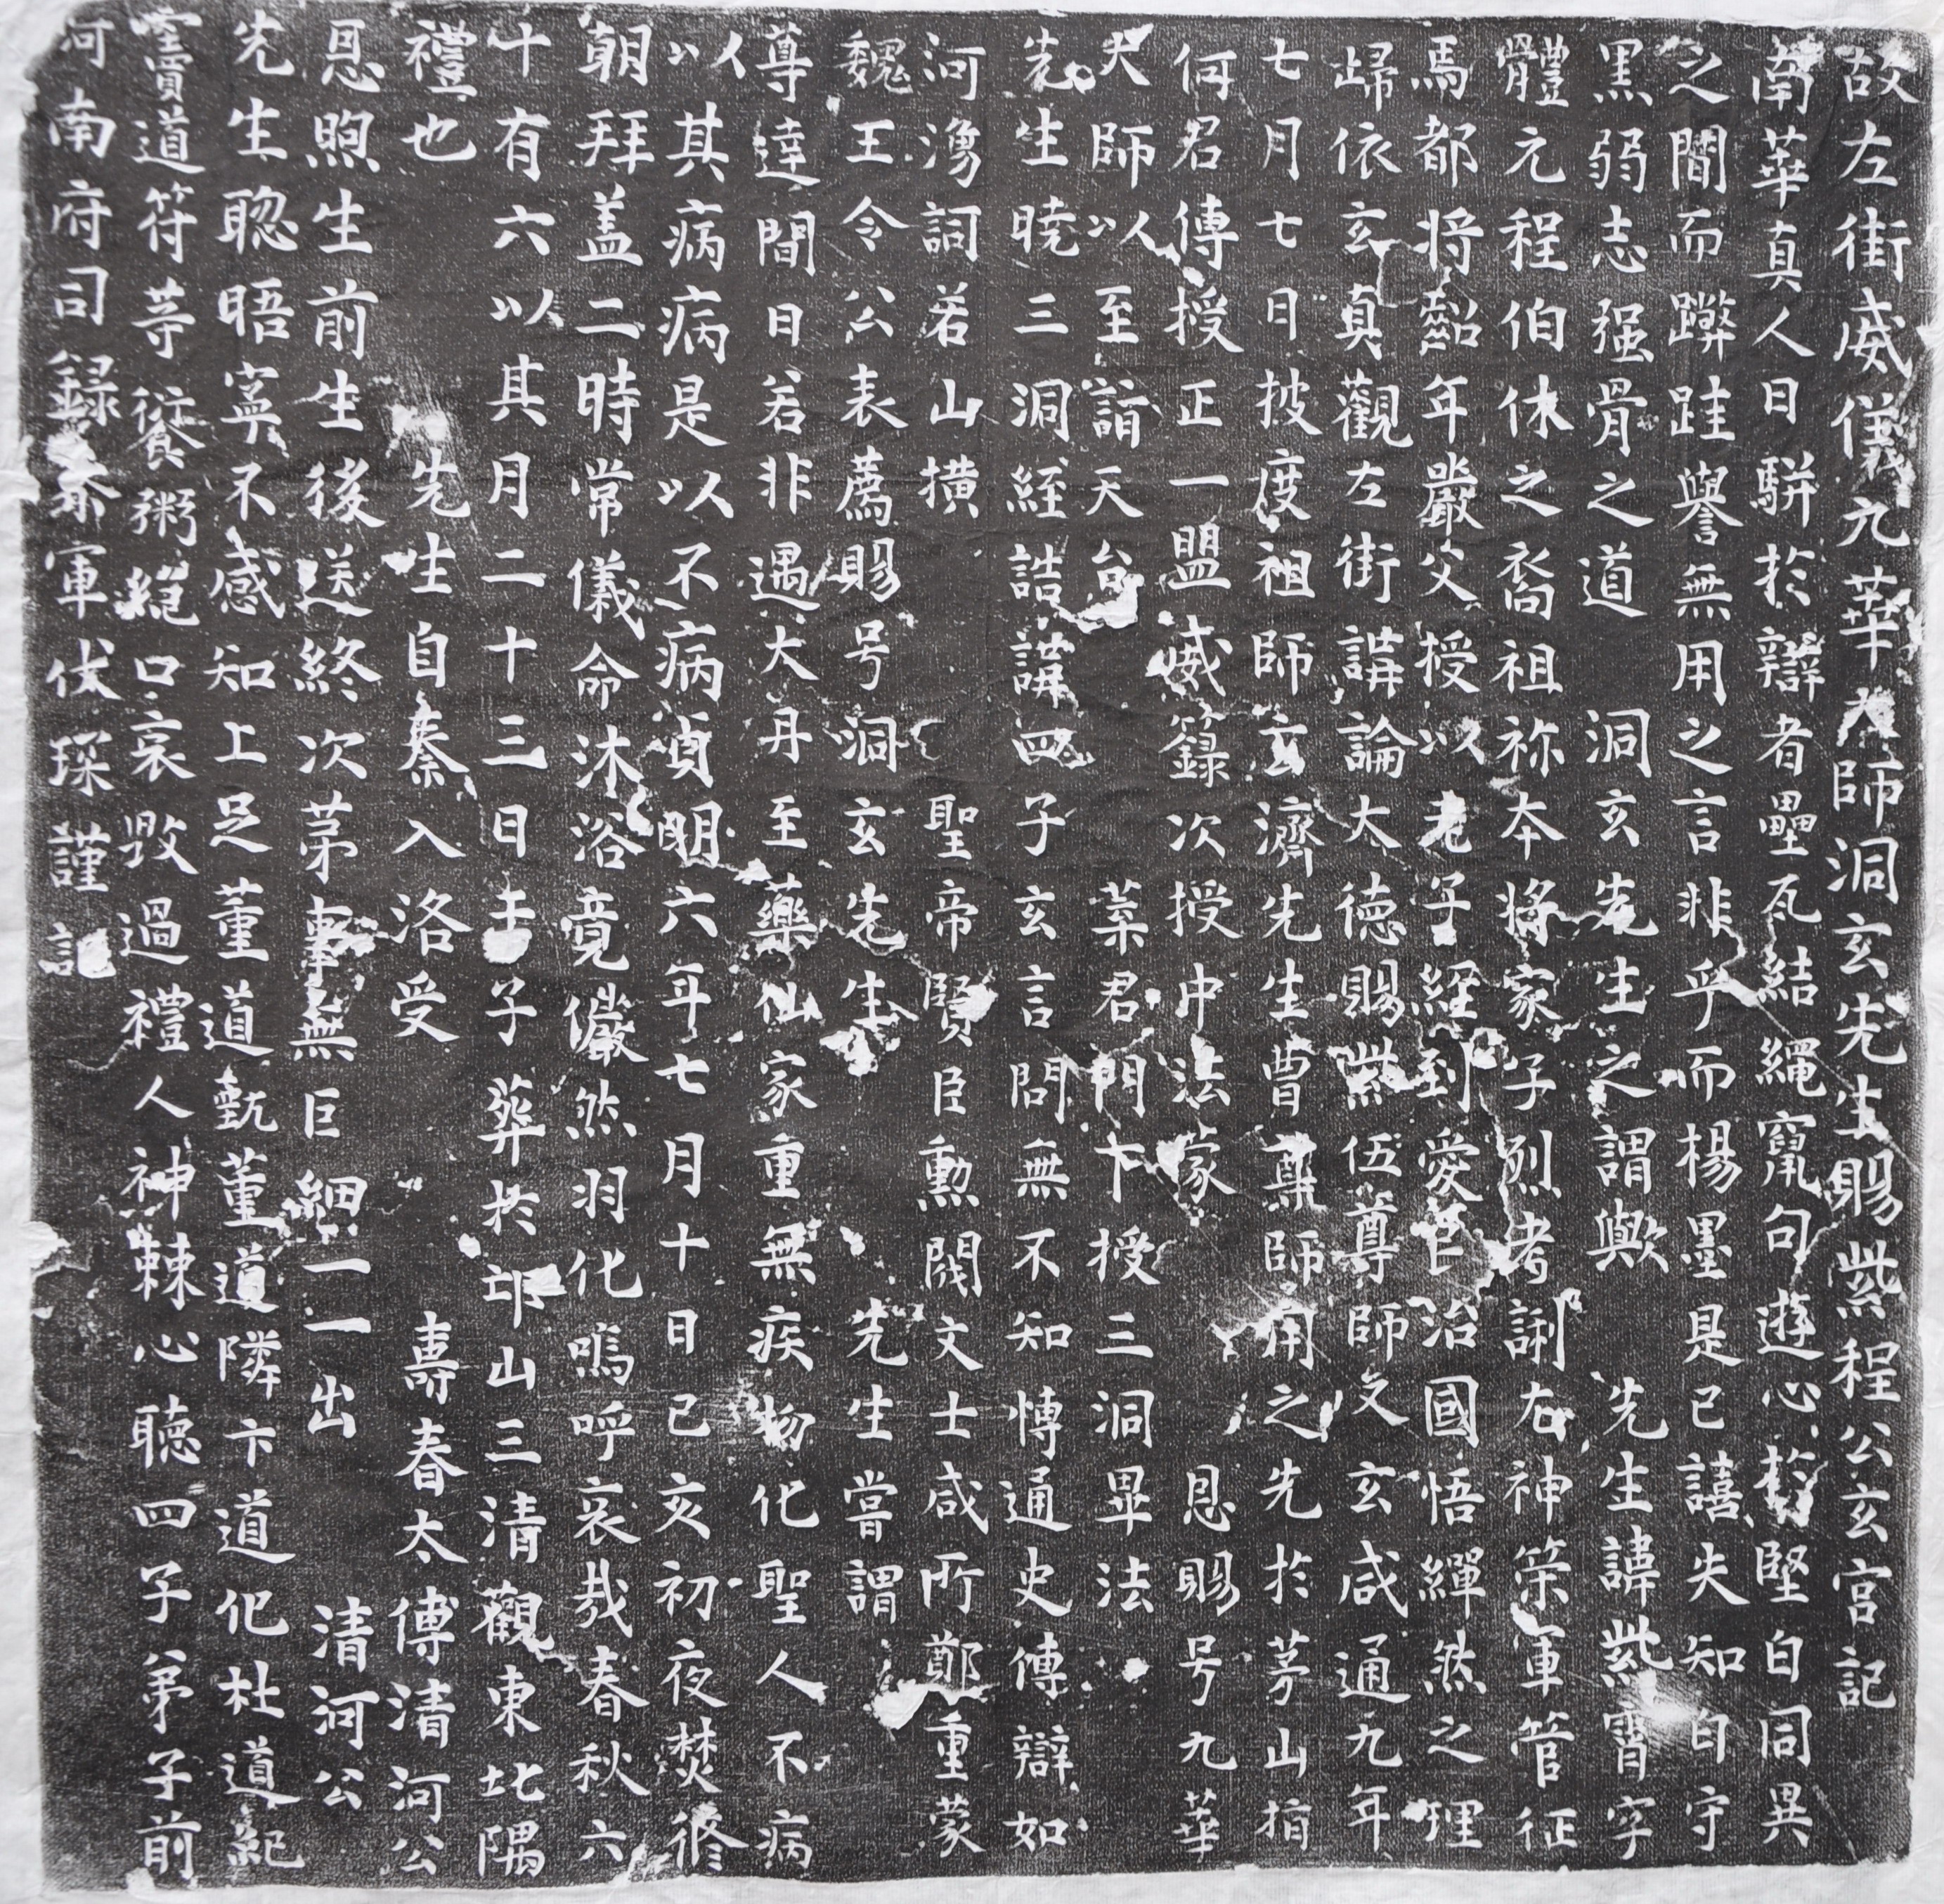 故左街威儀九華大師洞玄先生賜紫程公玄宮記
南華真人曰駢於辯者壘瓦結繩竄句遊心於堅白同異
之間而蹩跬譽無用之言非乎而楊墨是已譆失知白守
黑弱志强骨之道　洞玄先生之謂歟　先生諱紫霄字
體元程伯休之裔祖祢本將家子烈考諫右神策軍管征
馬都将齠年嚴父授以老子經到愛巨治國悟繟然之理
歸依玄真觀左街講論大德賜紫伍尊師又玄咸通九年
七月七日披度祖師玄濟先生曹尊師用之先於茅山指
何君傳授正一盟威籙次授中法蒙　恩賜号九華
大師以　至詣天台　葉君門下授三洞畢法
先生曉三洞經誥講四子玄言問無不知博通史傳辯如
河湧詞若山橫　聖帝賢臣勲閥文士咸所鄭重蒙
魏王令公表薦賜号洞玄先生　先生嘗謂
尊達間曰若非遇大丹至藥仙家重無疾物化聖人不病
以其病病是以不病貞明六年七月十日己亥初夜焚修
朝拜盖二時常儀命沐浴竟儼然羽化嗚呼哀哉春秋六
十有六以其月二十三日壬子葬於邙山三清觀東北隅
禮也　先生自秦入洛受　壽春太傅清河公
恩煦生前生後送終次苐事無巨細一一出　清河公
先生聡晤寘不感知上足董道甄董道隣卞道化杜道紀
霊賓道符䓁餐粥絕口哀毁過禮人神棘心聽四子弟子前
河南府司録叅軍伏琛謹記